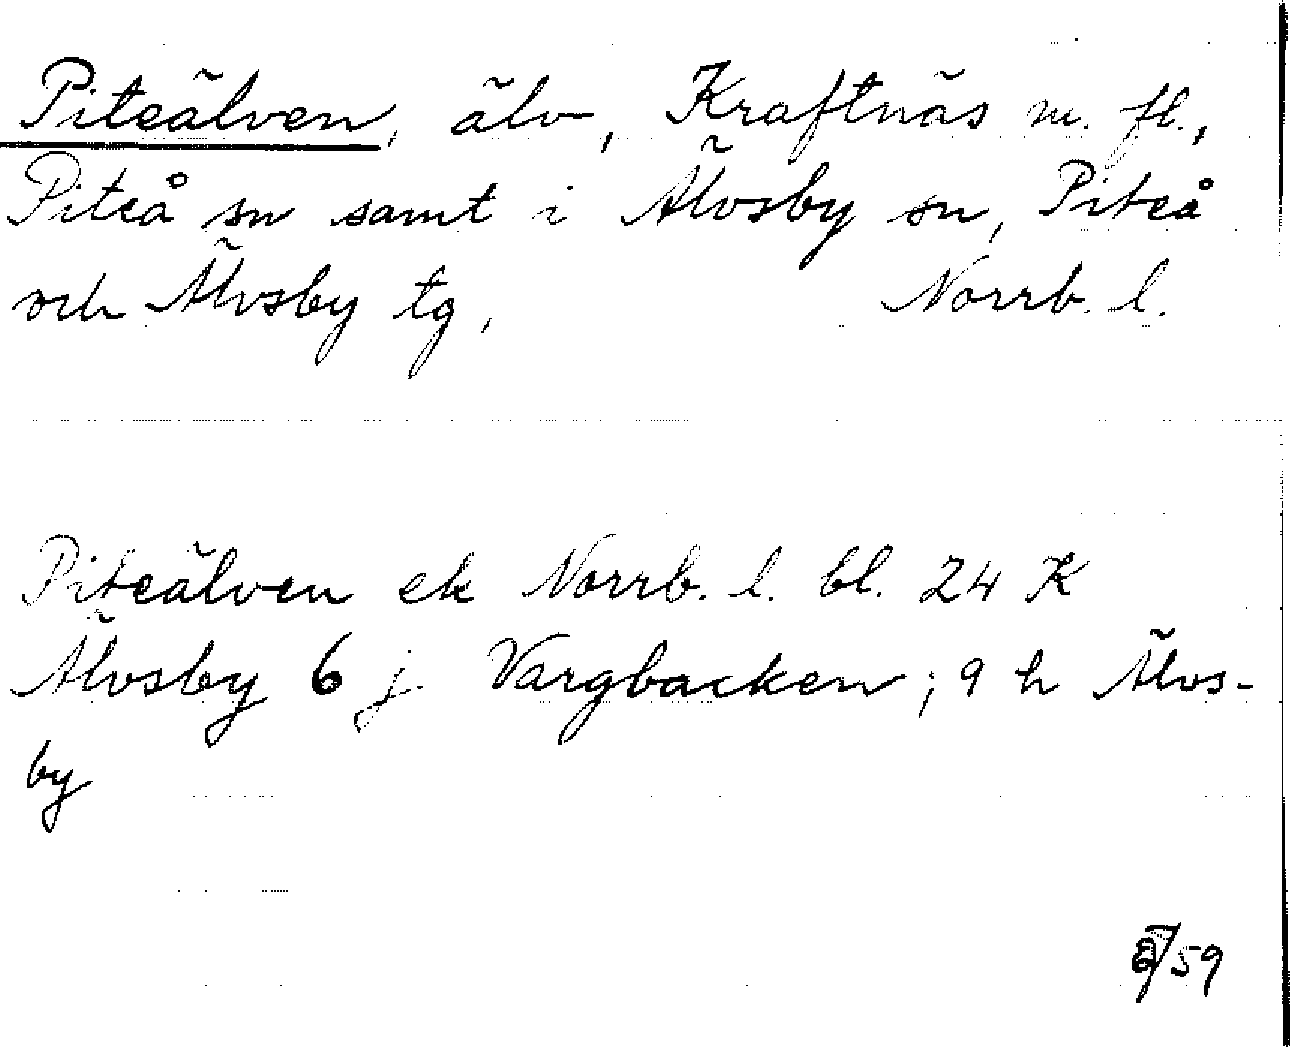 Piteälven, älv, Kraftnäs m. fl.,
Piteå sn samt i Älvsby sn, Piteå
och Älvsby tg, Norrb. l.
Piteälven ek Norrb. l. bl. 24 K
Älvsby 6 j Vargbacken; 9 h Älvs-
by
/59